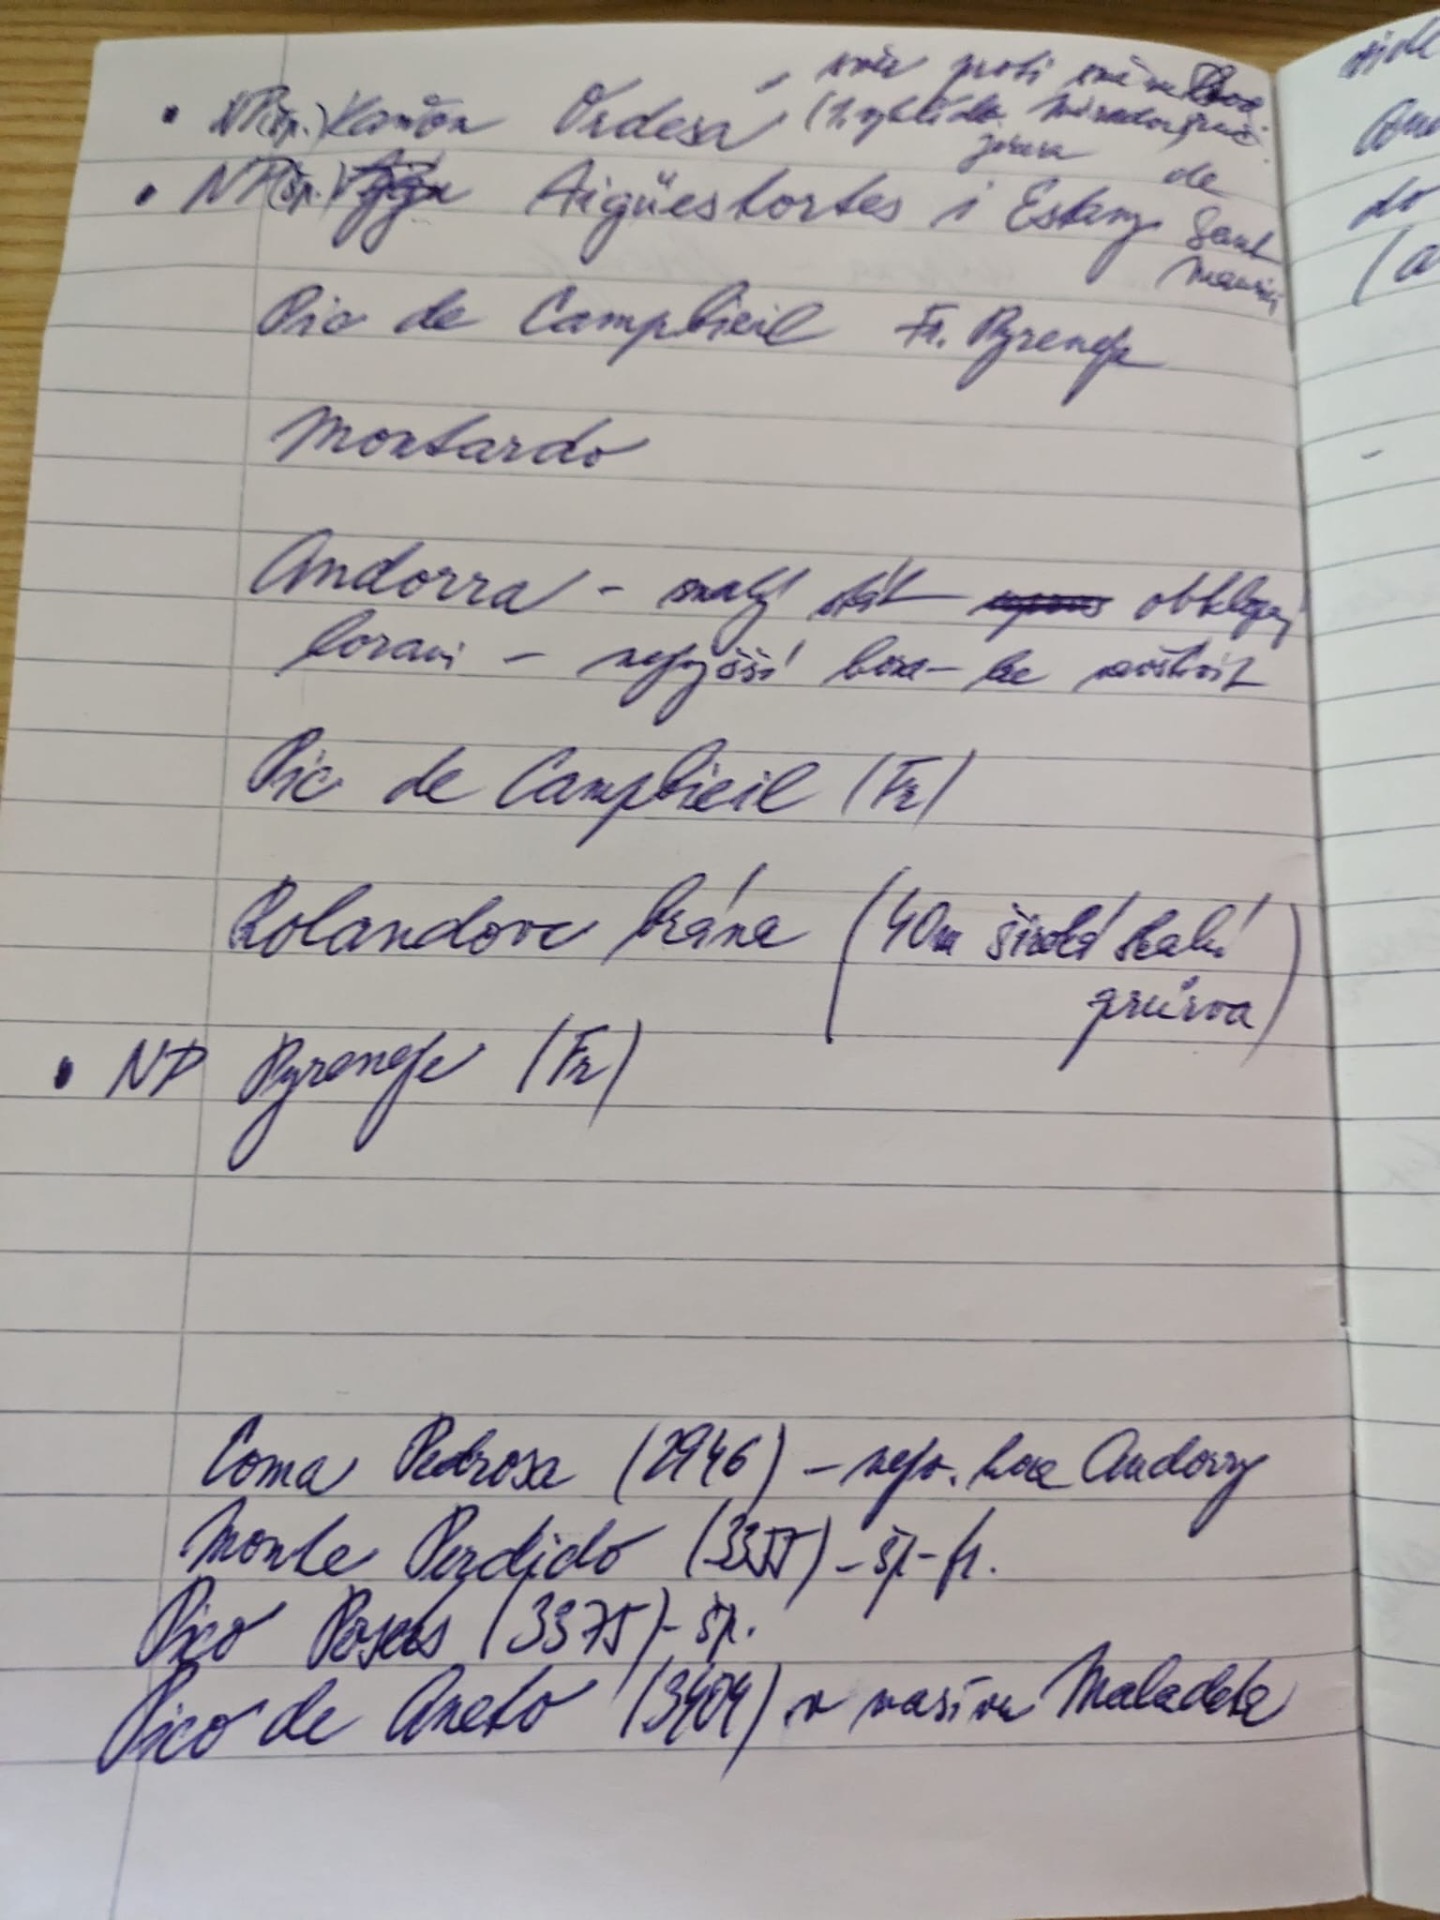 • NP(šp.) Kaňon Ordesa - směr proti
(Z vyhlídky Mirador
• NP(šp.) Aigüestortes i Estany de
Sant
Maurici
Pic de Campbieil Fr. Pyreneje
Montardo
Andorra - malý stát obklopený
horami - nejvyšší hora - lze navštívit
Pic de Campbieil (Fr)
Rolandova brána (40m široká skalní
průrva)
• NP Pyreneje (Fr)
Coma Pedrosa (2946) - nejv. hora Andorry
Monte Perdido (3355) - šp-fr.
Pico Posets (3375) - šp.
Pico de Aneto (3404) v masivu Maladeta